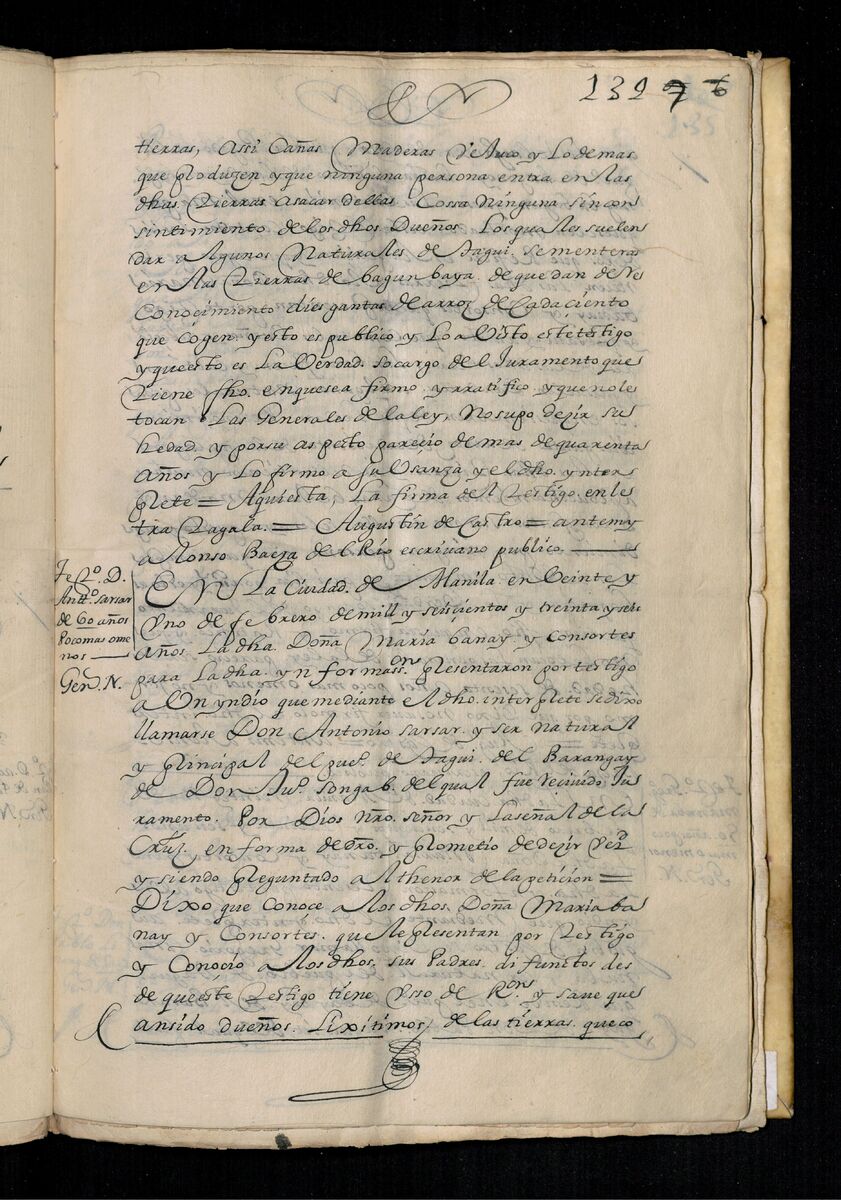 132 7 6
tierras, Assi Cañas Maderas Y Arro y Lo demas
que produzen y que ninguna persona entra en Las
dhas Tierras asacar dellas Cossa Ninguna sin con
sintimiento de los dhos Dueños. Los quales suelen
dar a Algunos Naturales de Tagui. sementeras
en las Tierras de bagunbaya. de que dan de Re
Conocimiento dies gantas de arroz de Cada ciento
que cogen y esto es publico y Lo a Visto este testigo
y questo es La Verdad. so cargo del Juramento que
Tiene fho. en que se a firmo y rratifico y que no le
tocan Las Generales de la ley, No supo dezir su
hedad y por su aspecto pareçio de mas de quarenta
años y Lo firmo a su Vsanza y el dho. ynter
prete = Aquiesta, La firma del Testigo. en le
tra Tagala. = Augustin de Castro = ante my
Alonso Baeza del Rio escrivano publico.
Te Tº. D.
Antº. sarsar
de 60 años
Poco mas o me
nos
Gen. N.
EN La Ciudad. de Manila en Veinte y
Vno de febrero de mill y seisçientos y treinta y seis
años La dha. Doña Maria banay y Consortes
para La dha. yn formass.on presentaron por testigo
a Vn yndio que mediante el dho. interprete se dixo
llamarse Don Antonio sarsar. y ser natural
y principal del pueº. de Tagui. del Barangay
de Don Juº. songab. del qual fue Recivido Ju
ramento. Por Dios nro. señor y La señal de la
Cruz, en forma de dro. y prometio de dezir Ver.d
y siendo preguntado al thenor de la peticion =
Dixo que Conoce a los dhos. Doña Maria ba
nay y Consortes. que le presentan por Testigo
y Conocio a los dhos. sus Padres. difunctos des
de que este Testigo tiene Vsso de R.on y save que
an sido dueños. Lixitimos, de las tierras. que co